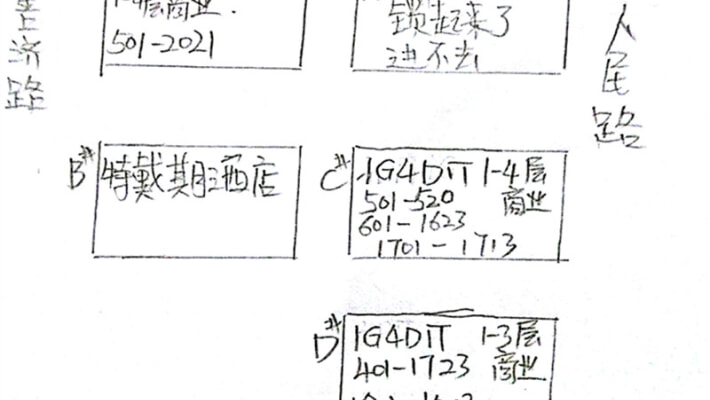 1-4层商业.
501-2021
锁起来了
进不去
人民路
济路
B#
特戴期酒店
C#
1G4DIT 1-4层
501-520 商业
601-1623
1701-1713
D#
1G4DIT 1-3层
401-1723 商业